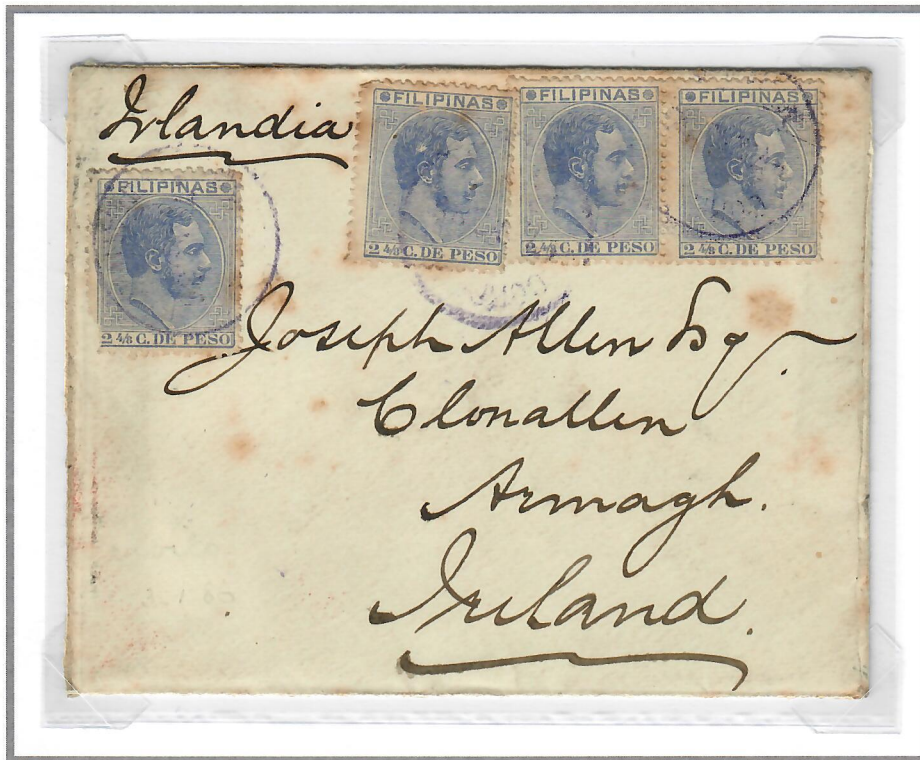 Irlandia
FILIPINAS
2 4/8 C. DE PESO
FILIPINAS
2 4/8 C. DE PESO
FILIPINAS
2 4/8 C. DE PESO
FILIPINAS
2 4/8 C. DE PESO
Joseph Allen Esq
Clonallen
Armagh.
Ireland.